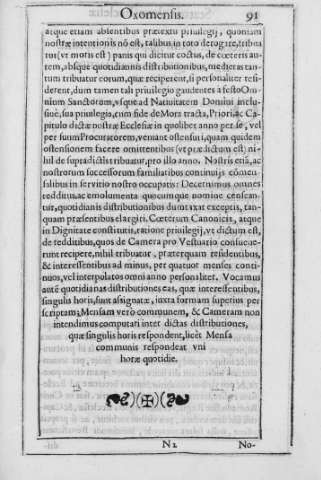 Oxomensis. 91
atque etiam absentibus prætextu priuilegij, quoniam
nostræ intentionis nõ est, talibus in toto derogare, tribua
tur (vt moris est) panis qui dicitur coctus, de cœteris au-
tem, absque quotidianis distributionibus, medietas tan-
tum tribuatur eorum, quæ reciperent, si personaliter resi-
derent, dum tamen tali priuilegio gaudentes à festo Om
nium Sanctorum, vsque ad Natiuitatem Domini inclu-
siuè, sua priuilegia, cum fide de Mora tracta, Priori, ac Ca
pitulo dictæ nostræ Ecclesiæ in quolibet anno per se, vel
per suum Procuratorem, veniant ostensuri, quam quidem
ostensionem facere omittentibus (vt præ dictum est) ni-
hil de supradictis tribuatur, pro illo anno. Nostris etiã, ac
nostrorum successorum familiaribus continuis cõmen-
salibus in seruitio nostro occupatis: Decernimus omnes
redditus, ac emolumenta quocumque nomine censean-
tur, quotidianis distributionibus dumtaxat exceptis, tan-
quam præsentibus elargiri. Cœterum Canonicis, atque
in Dignitate constitutis, ratione priuilegij, vt dictum est,
de redditibus, quos de Camera pro Vestuario consueue-
runt recipere, nihil tribuatur, præterquam residentibus,
& interessentibus ad minus, per quatuor menses conti-
nuos, vel interpolatos omni anno personaliter. Vocamus
autẽ quotidianas distributiones eas, quæ interessentibus,
singulis horis, sunt assignatæ, iuxta formam superius per
scriptam; Mensam verò communem, & Cameram non
intendimus computari inter dictas distributiones,
quæ singulis horis respondent, licèt Mensa
communis respondeat vni
horæ quotidie.
N2 No-